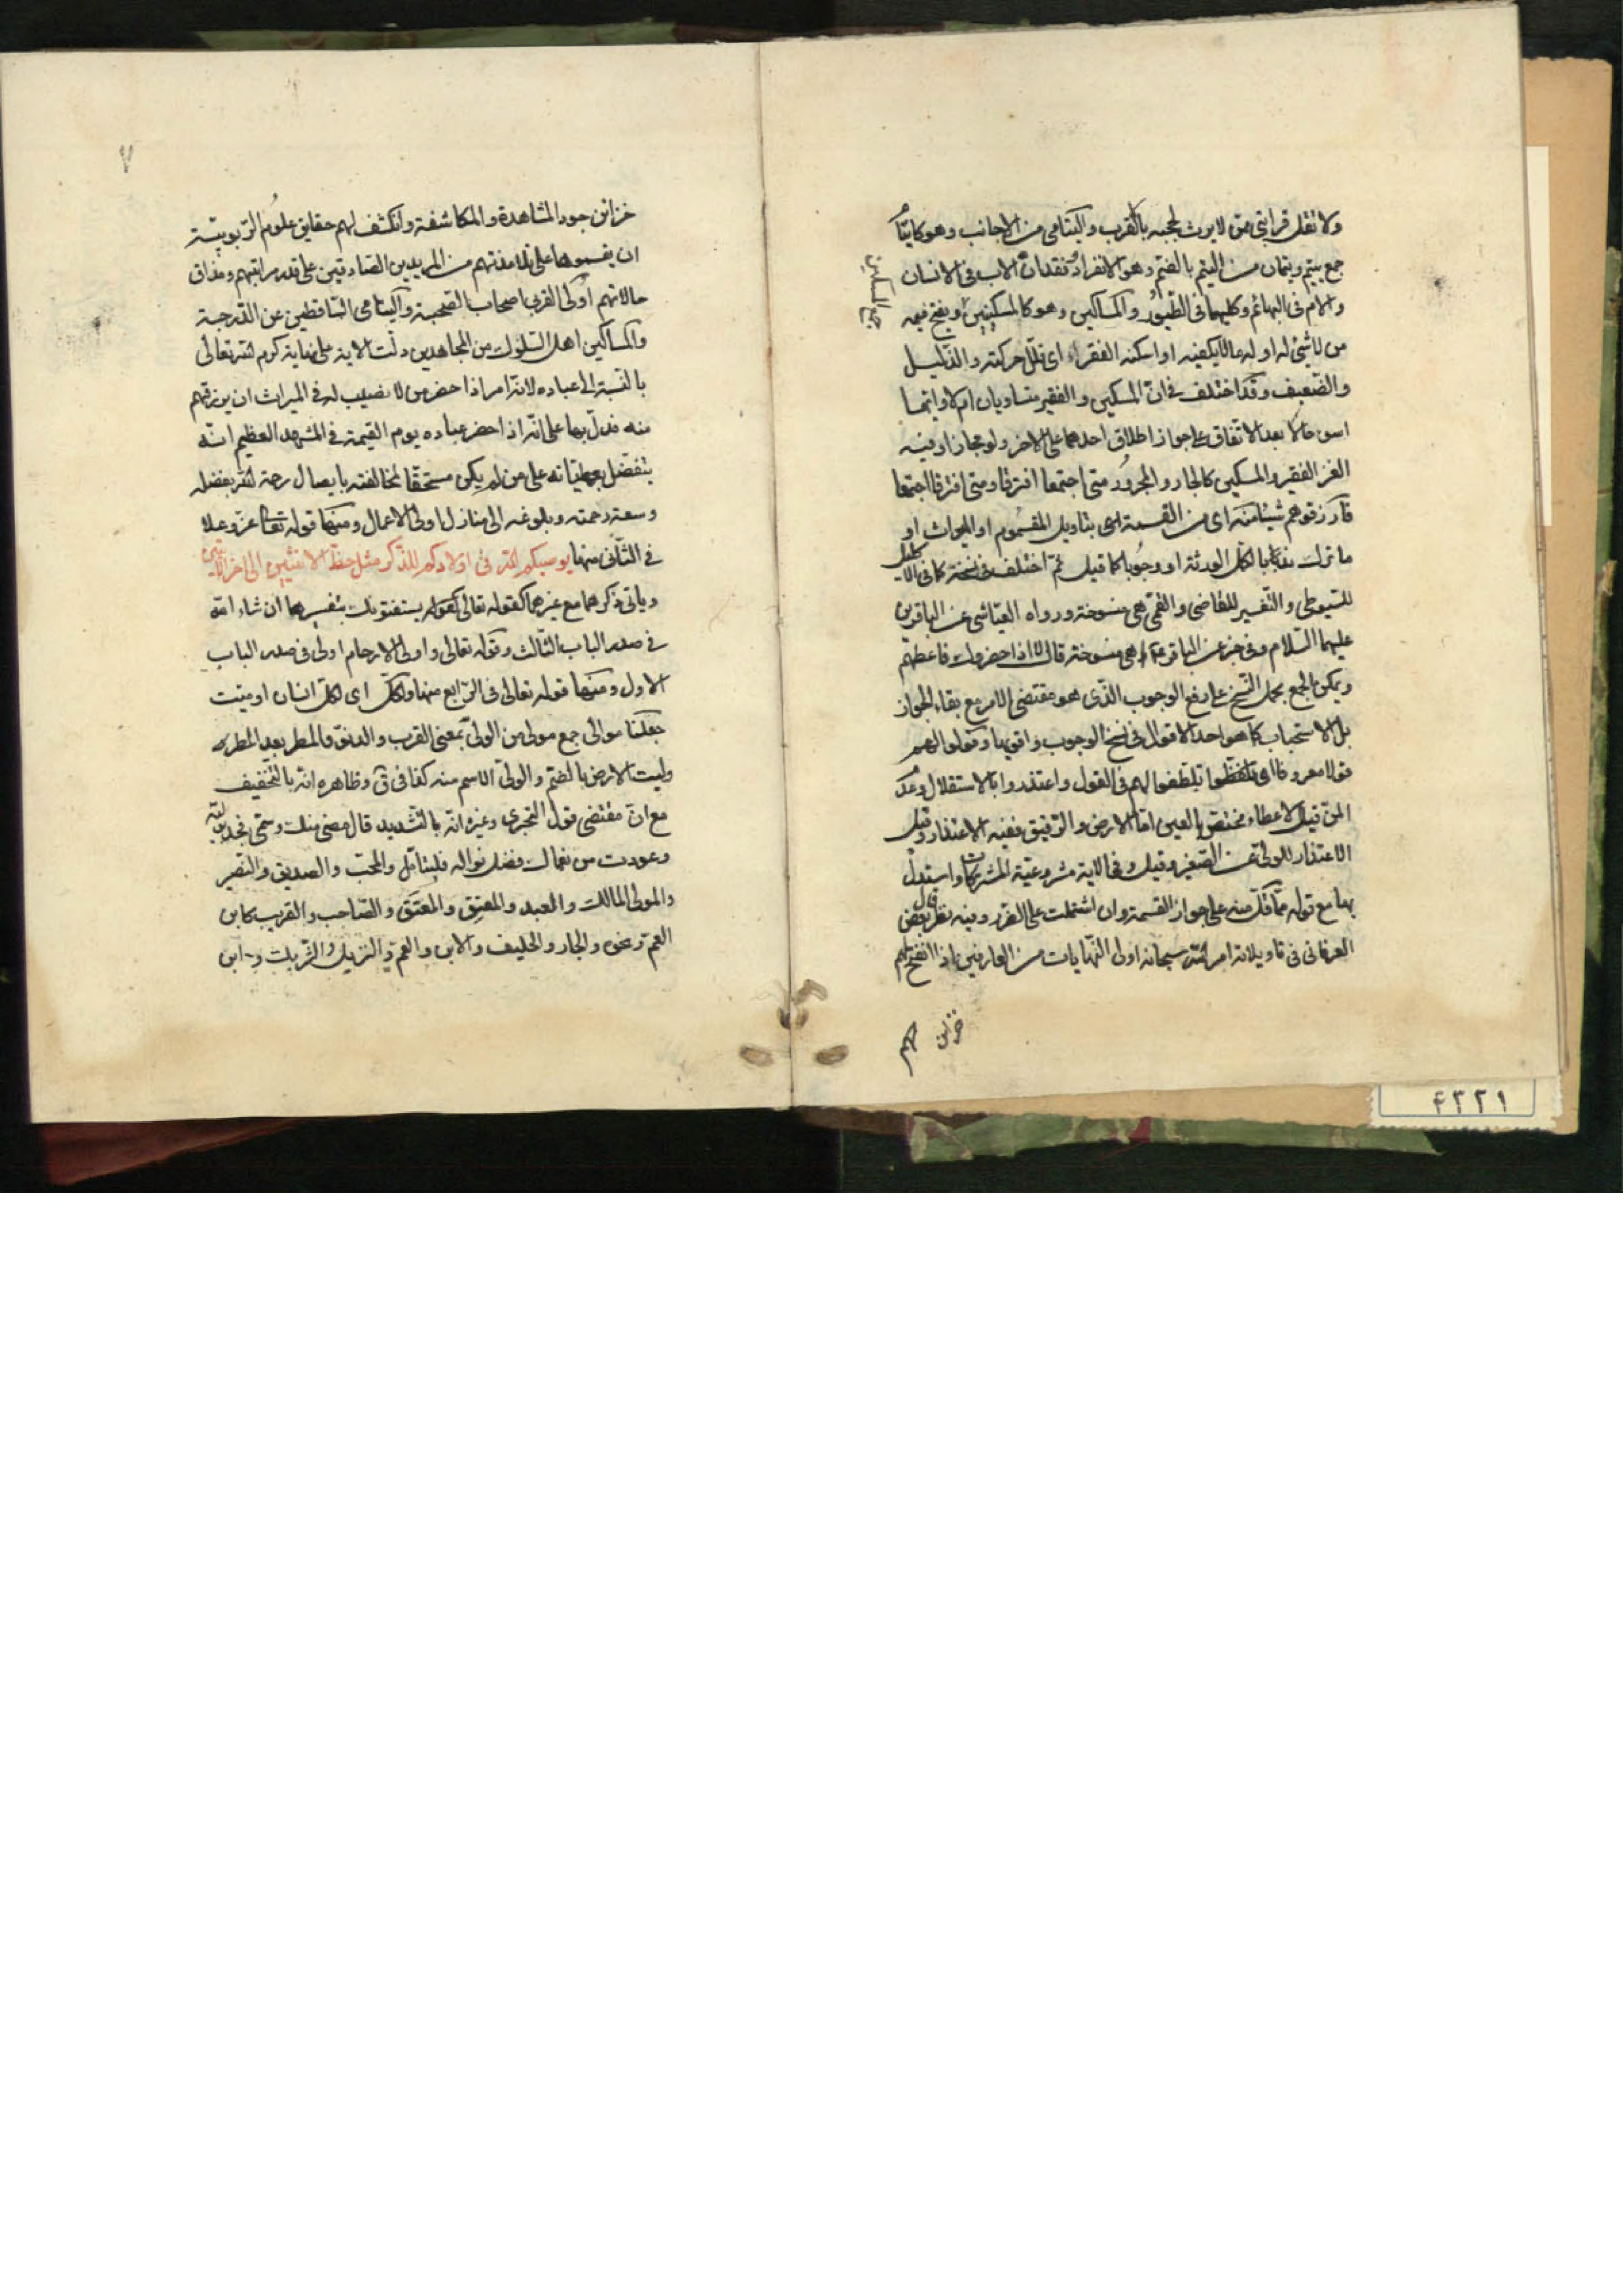 ولا تقل قرابتي ممن لا يرث لحجبه بالقرب واليتامى من الاجانب وهو كايتام
جمع يتيم ويتمان من اليتم بالضم وهو الانفراد وفقدان الاب في الانسان
والام في البهائم وكليهما في الطيور والمساكين وهو كالمسكينين ويفتح ميمه
جمع المسكين
من لا شئ له او له ما لا يكفيه او اسكنه الفقراء اى قلل حركته والذليل
والضعيف وقد اختلف في ان المسكين والفقير متساويان ام لا وايهما
اسوء حالا بعد الاتفاق على جواز اطلاق احدهما على الاخر ولو مجازا وفيه
الغز الفقير والمسكين كالجار والمجرور متى اجتمعا افترقا ومتى افترقا اجتمعا
فارزقوهم شيئا منه اى من القسمة اى بتاويل المقسوم او الميراث او
ما ترك بقابا لكل الورثة او وجوبا كما قيل ثم اختلف في نسخه كما في الاكليل
للسيوطى والتفسير للقاضى والقمى هى منسوخة ورواه العياشى عن الباقرين
عليهما السلام وفى خبر عن الباقر ع اهى منسوخة قال لا اذا حضروك فاعطهم
ويمكن الجمع بحمل النسخ على رفع الوجوب الذى هو مقتضى الامر مع بقاء الجواز
بل الاستحباب كما هو احد الاقوال في نسخ الوجوب واقويها وقولوا لهم
قولا معروفا اى تلطفوا لهم في القول واعتذروا بالاستقلال وعدم
المن قيل الاعطاء مختص بالعين اما الارض والرقيق ففيه الاعتذار وقيل
الاعتذار للولى عن الصغير وقيل وفى الاية مشروعية المشتركات واستدل
بها مع قوله مما قل منه على جواز القسمة وان اشتملت على الضرر وفيه نظر قال بعض
العرفانى في تاويلاته امر الله سبحانه اولى النهايات من العارفين اذا انفتح لهم
خزاين
خزاين جود المشاهدة والمكاشفة وانكشف لهم حقايق علوم الربوبية
ان يقسموها على تلامذتهم من المريدين الصادقين على قدر مراتبهم ومذاق
حالاتهم اولى القربى اصحاب الصحبة واليتامى الساقطين عن الدرجة
والمساكين اهل السلوك من المجاهدين دلت الاية على نهاية كرم الله تعالى
بالنسبة الى عباده لانه امر اذا حضر من لا نصيب له في الميراث ان يرزقهم
منه فدل بها على انه اذا حضر عباده يوم القيمة في المشهد العظيم انه
يتفضل بعطياته على من لم يكن مستحقا لمخالفته بايصال رحمة الله بفضله
وسعة رحمته وبلوغه الى منازل اولى الاعمال ومنها قوله تعالى عز وعلا
في الثانى منها يوصيكم الله في اولادكم للذكر مثل حظ الانثيين الى اخر الايتين
وياتى ذكرهما مع غيرهما كقوله تعالى كقوله يستفتونك بتفسيرها ان شاء الله
في صدر الباب الثالث وقوله تعالى واولى الارحام اولى في صدر الباب
الاول ومنها قوله تعالى في الرابع منها ولكل اى لكل انسان او ميت
جعلنا موالى جمع مولى من الولى بمعنى القرب والدنو والمطر بعد المطر
وليت الارض بالضم والولى الاسم منه كفا في ق وظاهره انه بالتخفيف
مع ان مقتضى قول وغيره انه بالتشديد قال مضى منك
وعودت من نعماك فضل نواله فليتامل والمحب والصديق والنصير
والمولى المالك والعبد والمعتق والمعتق والصاحب والقريب كابن
العم ونحوه والجار والحليف والابن والعم والنزيل والشريك وابن
٤٣٢١